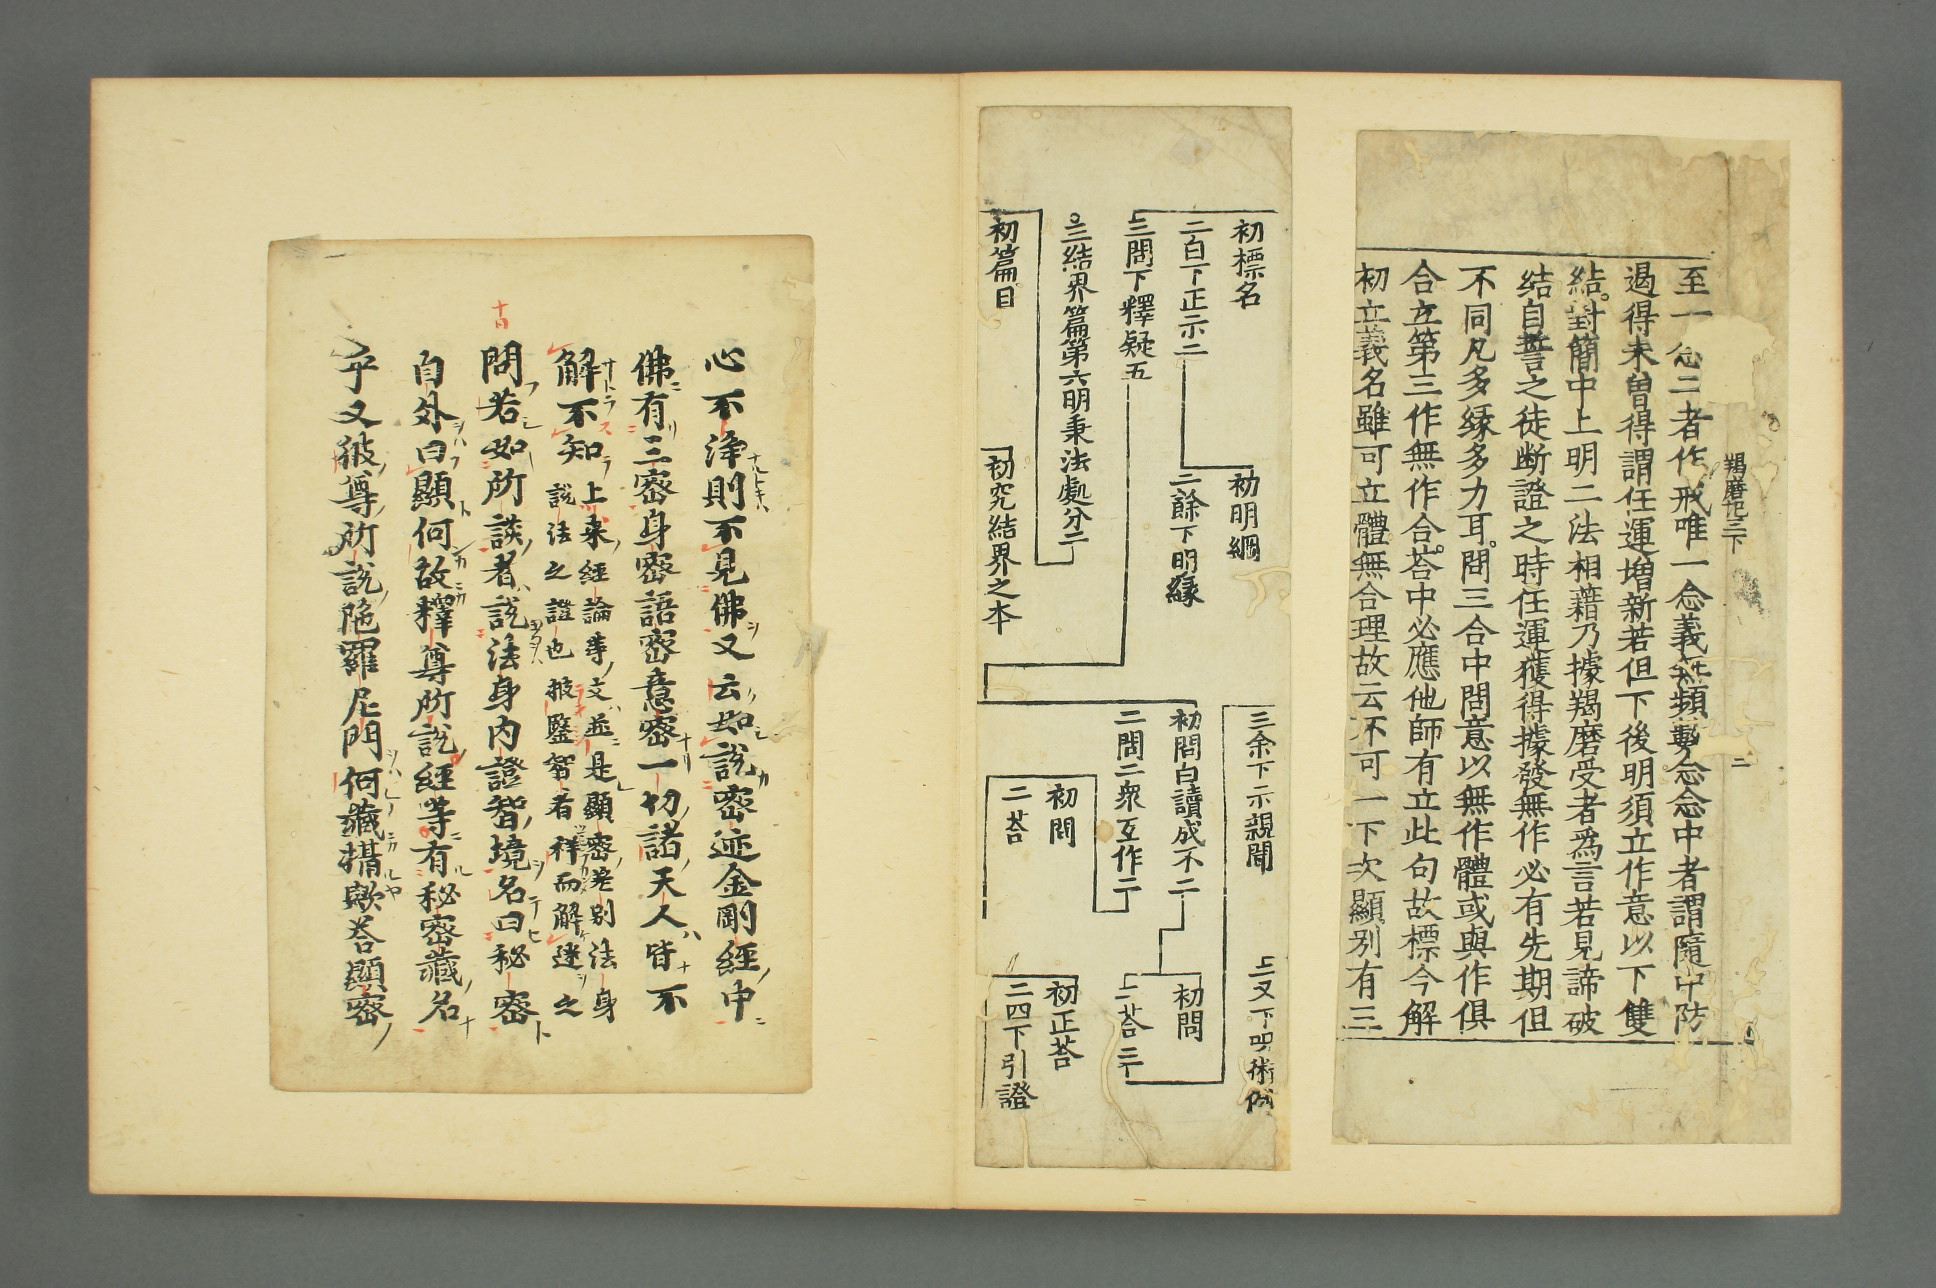 羯磨記三下
二
至一念二者作戒唯一念義無頻數念念中者謂隨中防
遏得未曽得謂任運増新若但下後明須立作意以下雙
結對簡中上明二法相藉乃據羯磨受者為言若見諦破
結自誓之徒断證之時任運獲得據發無作必有先期但
不同凡多縁多力耳問三合中問意以無作體或與作俱
合立第三作無作合荅中必應他師有立此句故標今解
初立義名雖可立體無合理故云不可一下次顯別有三
初標名
二白下正示二
三問下釋疑五
三結界篇第六明秉法處分二
初篇目
初明綱
二餘下明縁
初究結界之本
三余下示親聞
初問白讀成不二
二問二衆互作二
初問
二荅
上又下明術
初問
二荅二
初正荅
二四下引證
心不淨則不見佛又云如說密迹金剛經中
佛有三密身密語密意密一切諸天人皆不
解不知上来經論等文並是顯密差別法身
說法之證也披鑒智者祥而解迷之
十日
問若如所談者說法身内證智境名曰秘密
自外曰顯何故釋尊所說經等有秘密藏名
乎又彼尊所說陁羅尼門何藏攝歟荅顯密